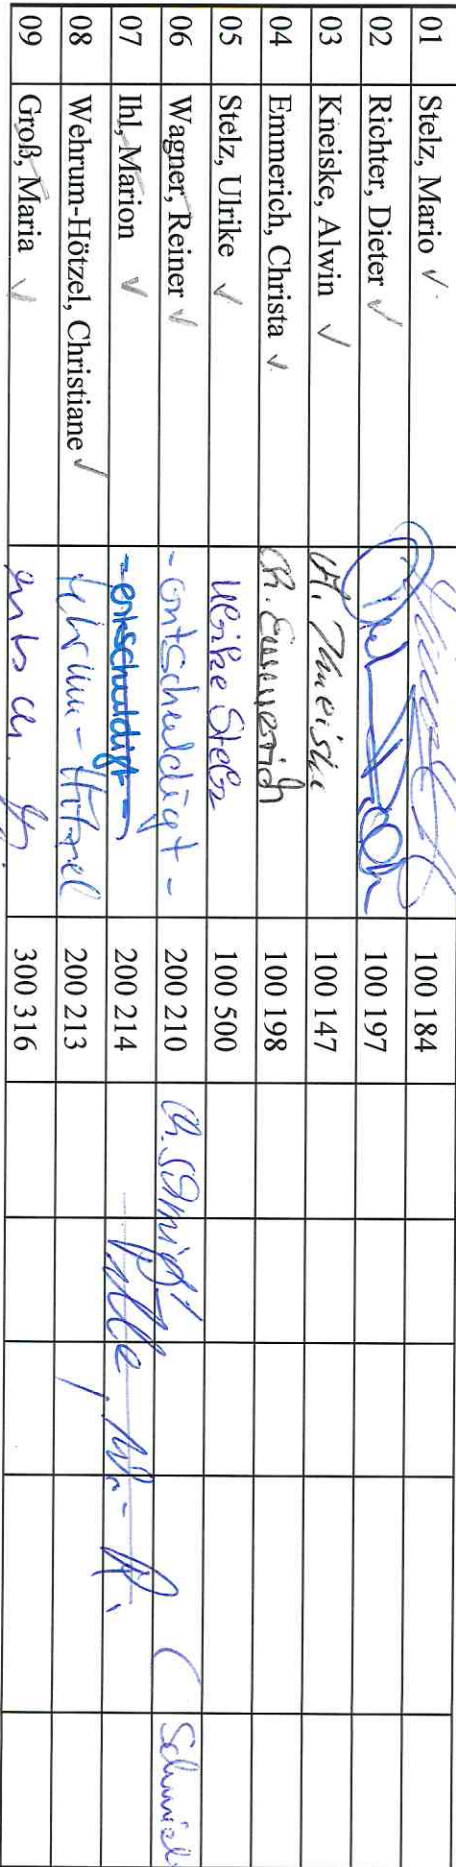 01 Stelz, Mario ✓ 100 184
02 Richter, Dieter ✓ 100 197
03 Kneiske, Alwin ✓ A. Kneiske 100 147
04 Emmerich, Christa ✓ Ch. Emmerich 100 198
05 Stelz, Ulrike ✓ Ulrike Stelz 100 500
06 Wagner, Reiner ✓ - entschuldigt - 200 210 Ch. Schmidt ( Schmidt
07 Ihl, Marion ✓ - entschuldigt - 200 214
08 Wehrum-Hötzel, Christiane ✓ Wehrum-Hötzel 200 213
09 Groß, Maria ✓ entsch. 300 316